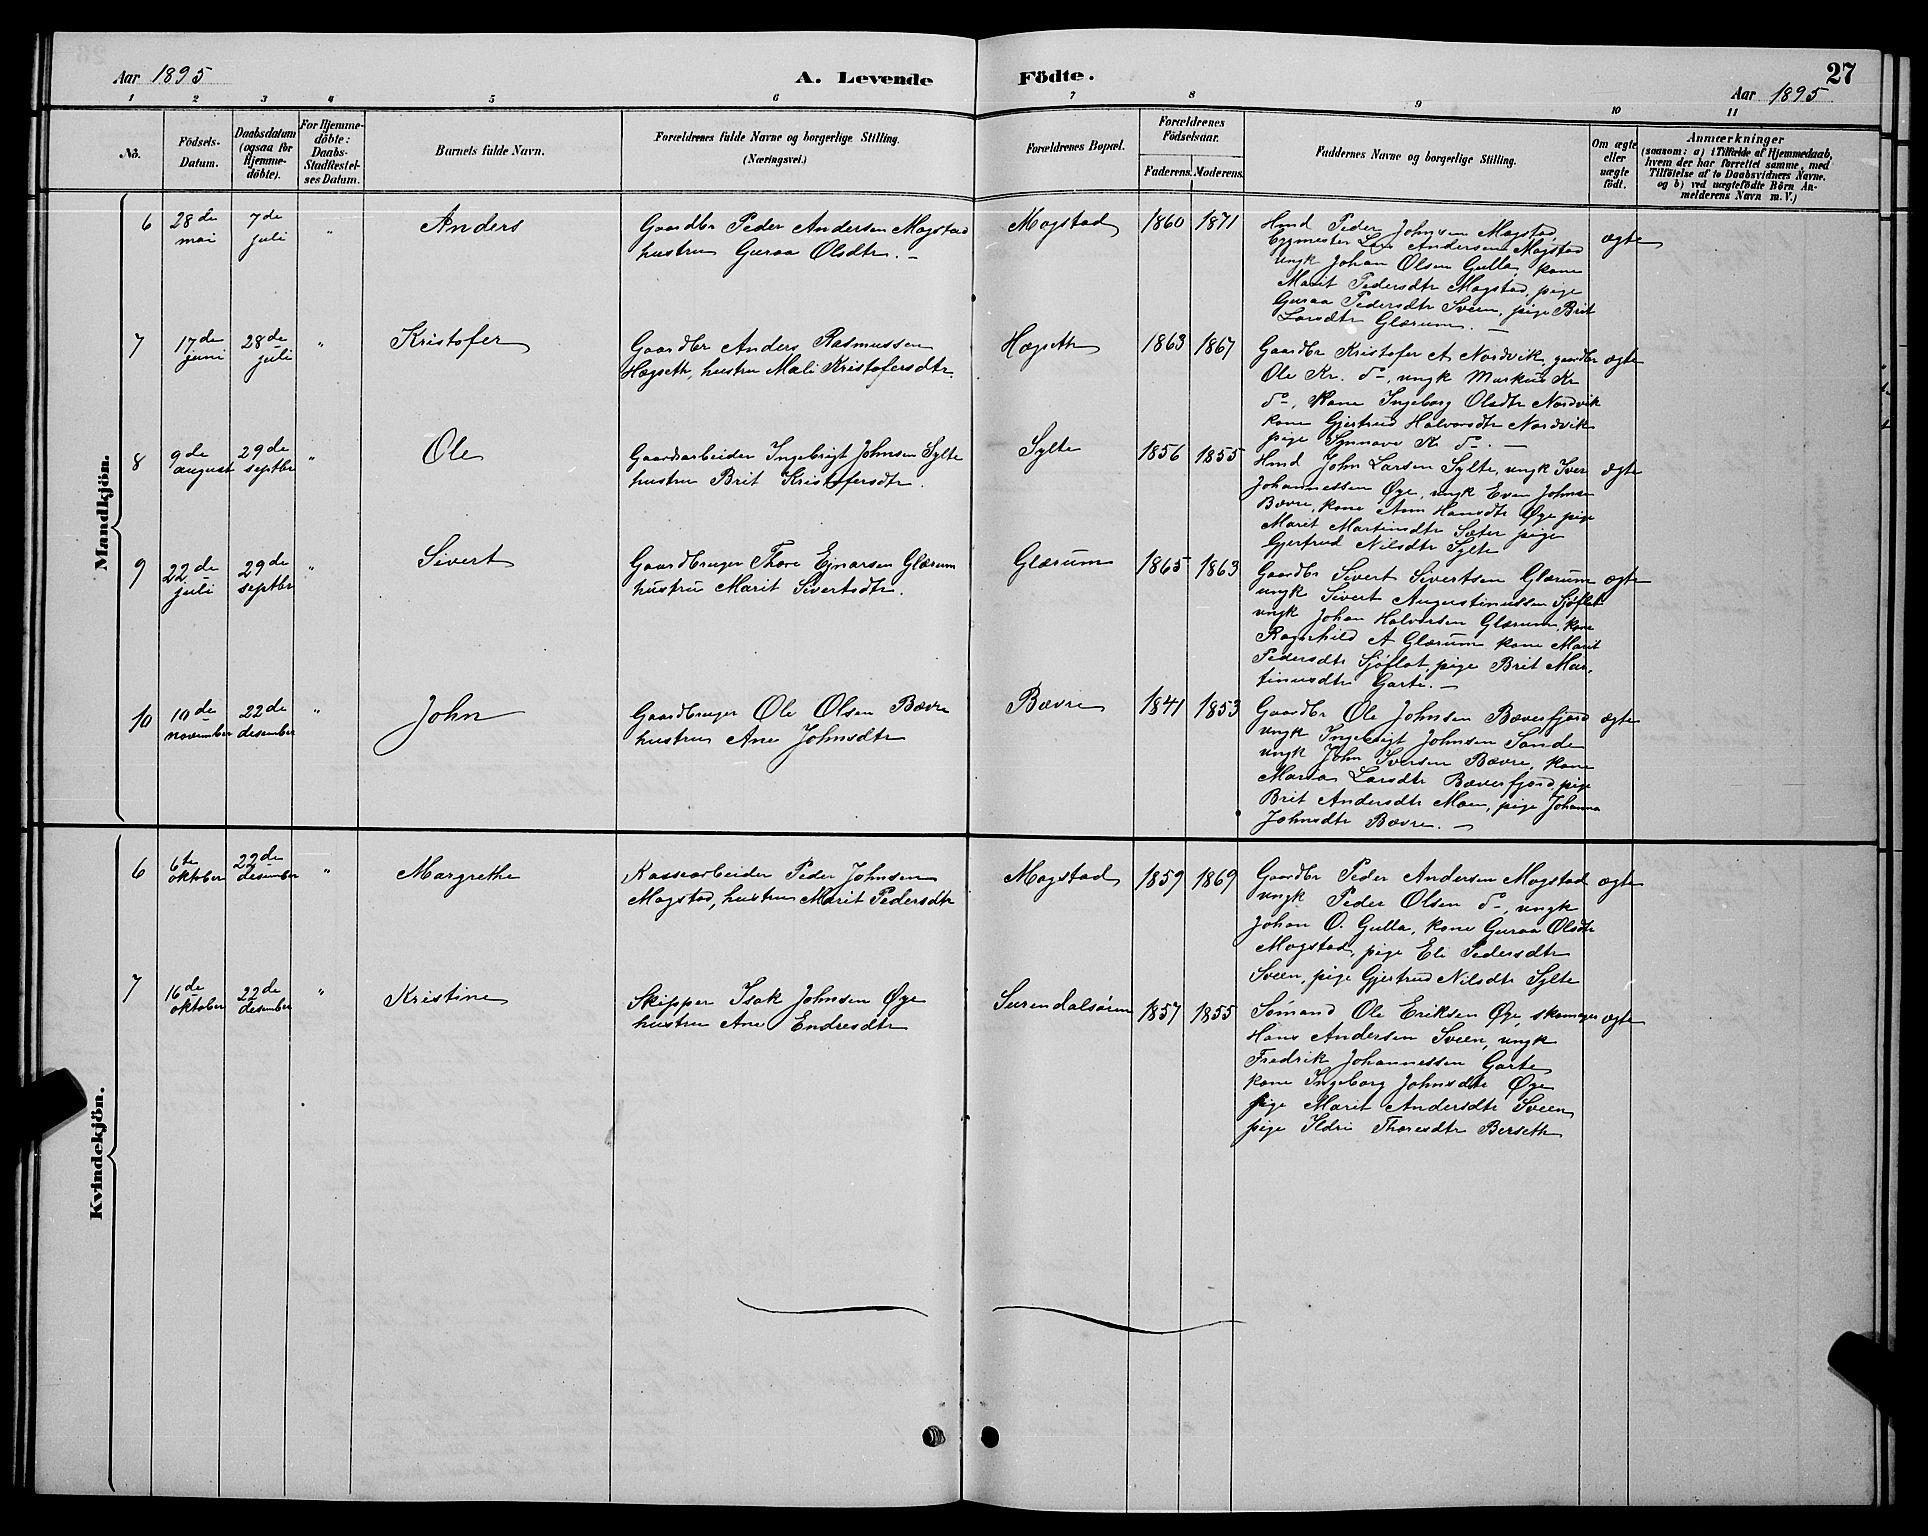 Aar 1895
A. Levende
Födte.
27
Aar 1895
1 2 3 4 5 6 7 8 9 10 11
No.
Födsels-
Datum.
Daabsdatum
(ogsaa for
Hjemme-
döbte).
For Hjemme-
döbte:
Daabs-
Stadfæstel-
ses Datum.
Barnets fulde Navn.
Forældrenes fulde Navne og borgerlige Stilling.
(Næringsvei.)
Forældrenes Bopæl.
Forældrenes
Födselsaar.
Faderens. Moderens.
Faddernes Navne og borgerlige Stilling.
Om ægte
eller
uægte
födt.
Anmærkninger
(saasom: a) i Tilfælde af Hjemmedaab,
hvem der har forrettet samme, med
Tilföielse af to Daabsvidners Navne.
og b) ved uægtefödte Börn An-
melderens Navn m. V.)
Mandkjön.
6
28de
mai
7de
juli
"
Anders
Gaardbr Peder Andersen Mogstad
hustru Guraa Olsdtr. –
Mogstad
1860 1871
Hmd Peder Johnsen Mogstad
Bygmester Lars Andersen Mogstad
ungk Johan Olsen Gulla, kone
Marit Pedersdtr Mogstad, pige
Guraa Pedersdtr Sveen, pige Brit
Larsdtr Glærum. –
ægte
7
17de
juni
28de
juli
"
Kristofer
Gaardbr Anders Rasmussen
Høgseth, hustru Mali Kristofersdtr.
Høgseth
1863 1867
Gaardbr Kristofer A Nordvik, gaardbr
Ole Kr. do, ungk Markus Kr
do, kone Ingeborg Olsdtr Nordvik
kone Gjertrud Halvorsdtr Nordvik
pige Synnave K do. –
ægte
8
9de
august
29de
septbr
"
Ole
Gaardarbeider Ingebrigt Johnsen Sylte
hustru Brit Kristofersdtr.
Sylte
1856 1855
Hmd John Larsen Sylte, ungk Iver
Johannessen Øye, ungk Even Johnsen
Bævre, kone Ann Hansdtr Øye pige
Marit Martinsdtr Sæter pige
Gjertrud Nilsdtr Sylte
ægte
9
22de
juli
29de
septbr
"
Sivert
Gaardbruger Thore Ejnarsen Glærum
hustru Marit Sivertsdtr.
Glærum
1865 1863
Gaardbr Sivert Sivertsen Glærum
ungk Sivert Augustinussen Sjøflot
ungk Johan Halvorsen Glærum, kone
Ragnhild A Glærum kone Marit
Pedersdtr Sjøflot, pige Brit Mar-
tinusdtr Garte. –
ægte
10
10de
november
22de
desember
"
John
Gaardbruger Ole Olsen Bævre
hustru Ane Johnsdtr
Bævre
1841 1853
Gaardbr Ole Johnsen Bæverfjord
ungk Ingebrigt Johnsen Sande
ungk John Iversen Bævre, kone
Maria Larsdtr Bæverfjord, pige
Brit Andersdtr Moen, pige Johanna
Johnsdtr Bævre. –
ægte
Kvindekjön.
6
6te
oktober
22de
desember
"
Margrethe
Kassearbeider Peder Johnsen
Mogstad, hustru Marit Pedersdtr
Mogstad
1859 1869
Gaardbr Peder Andersen Mogstad
ungk Peder Olsen do, ungk
Johan O. Gulla, kone Guraa Olsdtr
Mogstad, pige Eli Pedersdtr
Sveen, pige Gjertrud Nilsdtr Sylte
ægte
7
16de
oktober
22de
desember
"
Kristine
Skipper Isak Johnsen Øye
hustru Ane Endresdtr
Surendalsøren
1857 1855
Sømand Ole Eriksen Øye, skomager
Hans Andersen Sveen, ungk
Fredrik Johannessen Garte
kone Ingeborg Johnsdtr Øye
pige Marit Andersdtr Sveen
pige Ildri Thoresdtr Berseth
ægte